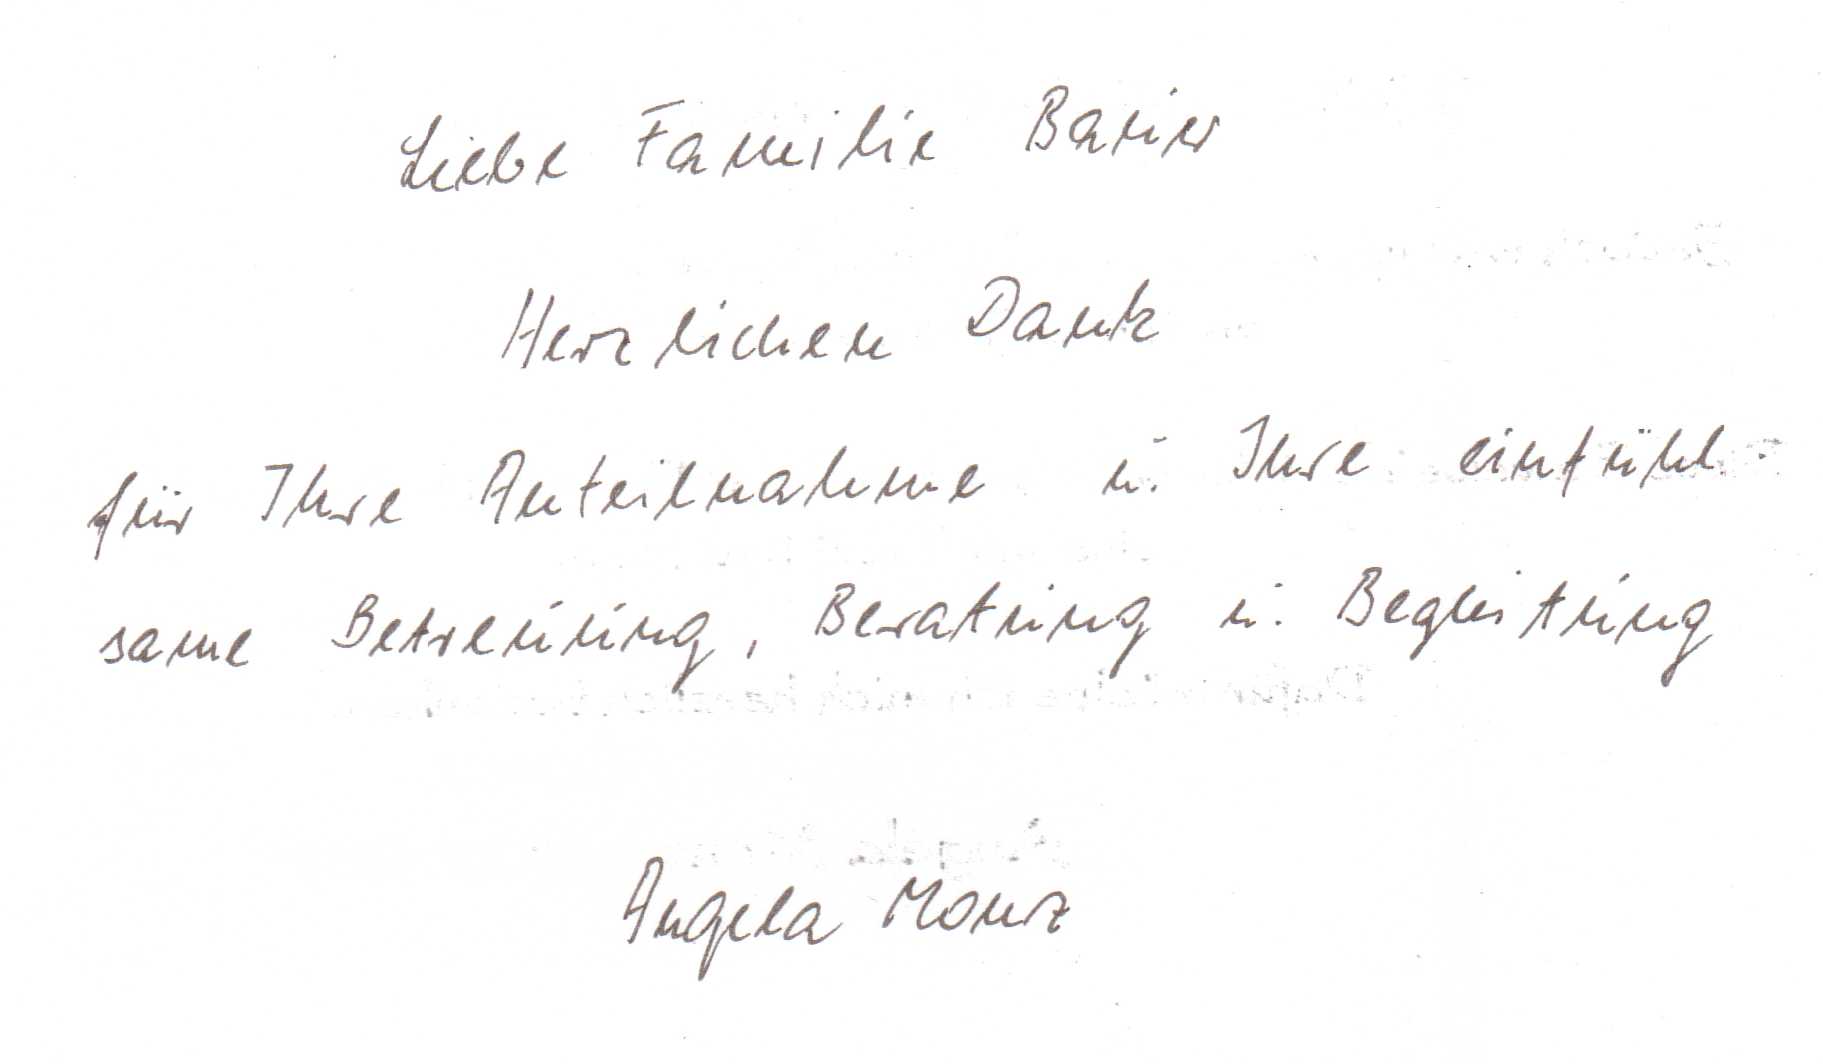 Liebe Familie Bauer
Herzlichen Dank
für Ihre Anteilnahme u. Ihre einfühl-
same Betreuung, Beratung u. Begleitung
Angela